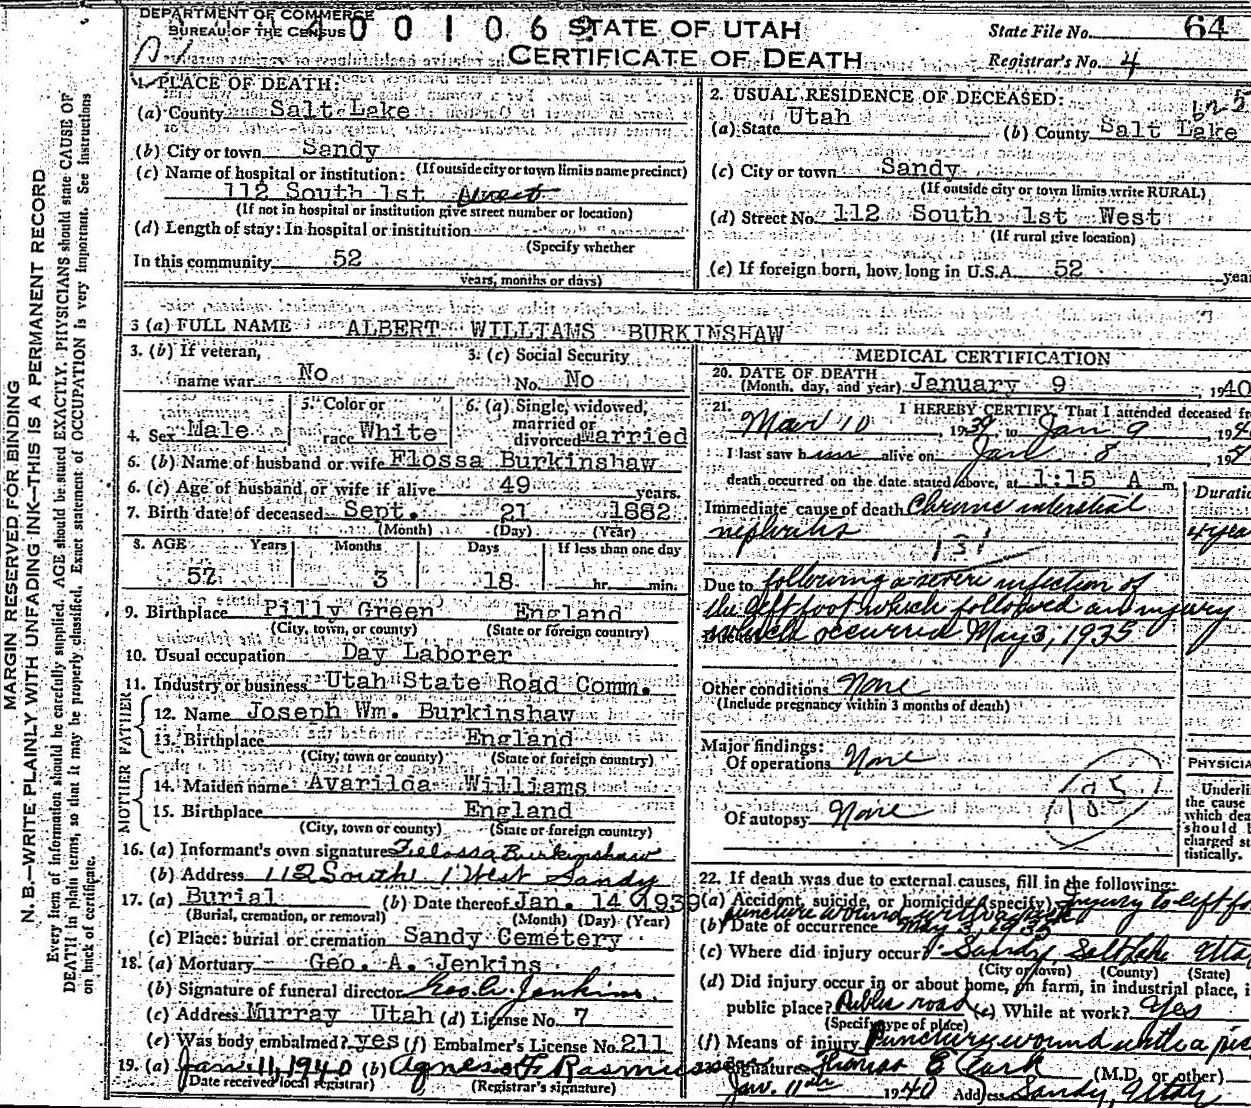 DEPARTMENT OF COMMERCE
BUREAU OF THE CENSUS
4001062
STATE OF UTAH
CERTIFICATE OF DEATH
State File No. 64
Registrar's No. 4
1. PLACE OF DEATH:
(a) County Salt Lake
(b) City or town Sandy
(If outside city or town limits name precinct)
(c) Name of hospital or institution:
112 South 1st West
(If not in hospital or institution give street number or location)
(d) Length of stay: In hospital or institution
(Specify whether
In this community 52
years, months or days)
2. USUAL RESIDENCE OF DECEASED:
(a) State Utah (b) County Salt Lake
(c) City or town Sandy
(If outside city or town limits write RURAL)
(d) Street No. 112 South 1st West
(If rural give location)
(e) If foreign born, how long in U.S.A. 52 year
3 (a) FULL NAME ALBERT WILLIAMS BURKINSHAW
3. (b) If veteran,
name war No
3. (c) Social Security
No. No
4. Sex Male
5. Color or
race White
6. (a) Single, widowed,
married or
divorced Married
6. (b) Name of husband or wife Flossa Burkinshaw
6. (c) Age of husband or wife if alive 49 years.
7. Birth date of deceased Sept. 21 1882
(Month) (Day) (Year)
8. AGE Years Months Days If less than one day
57 3 18 hr. min.
9. Birthplace Pilly Green England
(City, town, or county) (State or foreign country)
10. Usual occupation Day Laborer
11. Industry or business Utah State Road Comm.
FATHER
12. Name Joseph Wm. Burkinshaw
13. Birthplace England
(City, town or county) (State or foreign country)
MOTHER
14. Maiden name Avarilda Williams
15. Birthplace England
(City, town or county) (State or foreign country)
16. (a) Informant's own signature Flossa Burkinshaw
(b) Address 112 South 1 West Sandy
17. (a) Burial (b) Date thereof Jan. 14 1939
(Burial, cremation, or removal) (Month) (Day) (Year)
(c) Place: burial or cremation Sandy Cemetery
18. (a) Mortuary Geo. A. Jenkins
(b) Signature of funeral director Geo. A. Jenkins.
(c) Address Murray Utah (d) License No. 7
(e) Was body embalmed? yes (f) Embalmer's License No. 211
19. (a) Jan. 11, 1940 (b) Agnes F. Rasmussen
(Date received local registrar) (Registrar's signature)
MEDICAL CERTIFICATION
20. DATE OF DEATH
(Month, day, and year) January 9, 1940
21. I HEREBY CERTIFY, That I attended deceased fr
Mar 10, 1939, to Jan 9, 194
I last saw him alive on Jan 8, 19
death occurred on the date stated above, at 1:15 A m.
Duratio
Immediate cause of death Chronic interstial
nephritis 4 yea
131
Due to following a severe infection of
the left foot which followed an injury
which occurred May 3, 1935
Other conditions None
(Include pregnancy within 3 months of death)
Major findings:
Of operations None
Of autopsy None
185
PHYSICIA
Underli
the cause
which dea
should b
charged sta
tistically.
22. If death was due to external causes, fill in the following:
(a) Accident, suicide, or homicide (specify) Injury to left fo
puncture wound with a pick
(b) Date of occurrence May 3, 1935
(c) Where did injury occur? Sandy, Salt Lake Utah
(City or town) (County) (State)
(d) Did injury occur in or about home, on farm, in industrial place, i
public place? Public road (e) While at work? Yes
(Specify type of place)
(f) Means of injury Puncture wound with a pic
23. Signature Thomas E Clark (M.D. or other)
Jan. 11th 1940 Address Sandy, Utah
MARGIN RESERVED FOR BINDING
N. B.—WRITE PLAINLY WITH UNFADING INK—THIS IS A PERMANENT RECORD
Every item of information should be carefully supplied. AGE should be stated EXACTLY. PHYSICIANS should state CAUSE OF
DEATH in plain terms, so that it may be properly classified. Exact statement of OCCUPATION is very important. See instructions
on back of certificate.